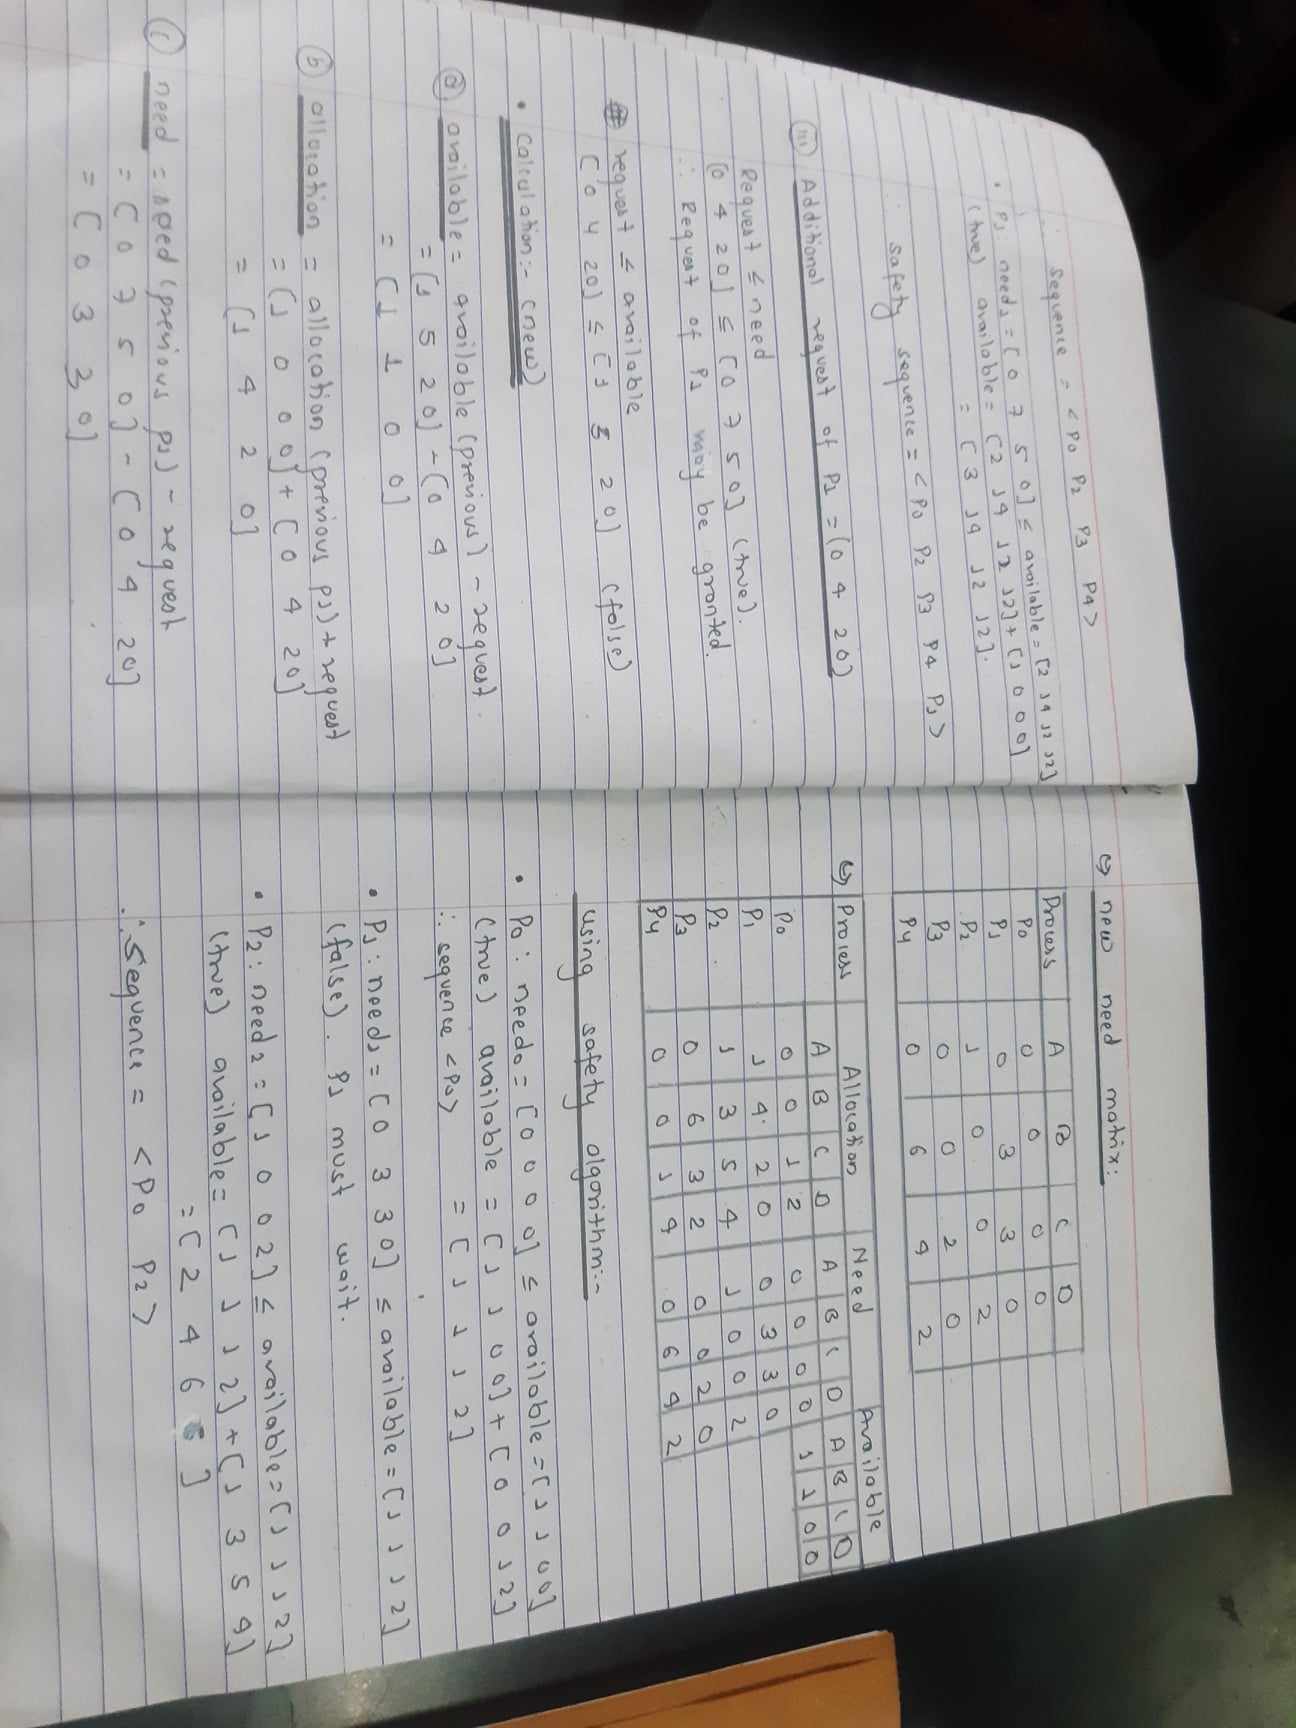 ∴ sequence = < P0 P2 P3 P4 >
• P1: need1 = [0 7 5 0] ≤ available = [2 14 12 12]
(true) available = [2 14 12 12] + [1 0 0 0]
= [3 14 12 12].
∴ safety sequence = < P0 P2 P3 P4 P1 >
(iii) Additional request of P1 = (0 4 2 0)
Request ≤ need
[0 4 2 0] ≤ [0 7 5 0] (true).
∴ Request of P1 may be granted.
request ≤ available
[0 4 2 0] ≤ [1 5 2 0] (false)
• Calculation:- (new)
(a) available = available (previous) - request.
= [1 5 2 0] - [0 4 2 0]
= [1 1 0 0]
(b) allocation = allocation (previous P1) + request
= [1 0 0 0] + [0 4 2 0]
= [1 4 2 0]
(c) need = need (previous P1) - request
= [0 7 5 0] - [0 4 2 0]
= [0 3 3 0]
↪ new need matrix:
Process A B C D
P0 0 0 0 0
P1 0 3 3 0
P2 1 0 0 2
P3 0 0 2 0
P4 0 6 4 2
↪ Process Allocation Need Available
A B C D A B C D A B C D
P0 0 0 1 2 0 0 0 0 1 1 0 0
P1 1 4 2 0 0 3 3 0
P2 1 3 5 4 1 0 0 2
P3 0 6 3 2 0 0 2 0
P4 0 0 1 4 0 6 4 2
using safety algorithm:-
• P0: need0 = [0 0 0 0] ≤ available = [1 1 0 0]
(true) available = [1 1 0 0] + [0 0 1 2]
∴ sequence <P0> = [1 1 1 2]
• P1: need1 = [0 3 3 0] ≤ available = [1 1 1 2]
(false). P1 must wait.
• P2: need2 = [1 0 0 2] ≤ available = [1 1 1 2]
(true) available = [1 1 1 2] + [1 3 5 4]
= [2 4 6 ]
∴ Sequence = < P0 P2 >